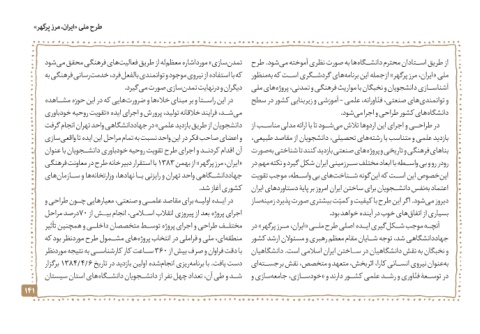 طرح ملی «ایران، مرز پرگهر»
از طریق اسـتادان محترم دانشـگاه‌ها به صورت نظری آموخته می‌شود. طرح
ملی «ایران، مرز پرگهر» ازجمله این برنامه‌های گردشـگری اسـت که به‌منظور
آشناسـازی دانشـجویان و نخبگان با مواریث فرهنگی و تمدنی، پروژه‌های ملی
و توانمندی‌های صنعتی، فنّاورانه، علمی - آموزشی و زیربنایی کشور در سطح
دانشگاه‌های کشور طراحی و اجرا می‌شود.
در طراحـــی و اجرای این اردوها تلاش می‌شـود تا با ارائه مدلی مناسـب از
بازدید علمی و متناسـب با رشته‌های تحصیلی، دانشجویان از مقاصد طبیعی،
بناهای فرهنگی و تاریخی و پروژه‌های صنعتی بازدید کنند تا شناختی به‌صورت
رودر رو و بی واسـطه با ابعاد مختلف سـرزمینی ایران شکل گیرد و نکته مهم در
این‌خصوص این است که این‌گونه شـناخت‌های بی واسـطه، موجب تقویت
اعتماد به‌نفس دانشجویان برای ساختن ایران امروز بر پایهٔ دستاوردهای ایران
دیروز می‌شود. اگر این طرح با کیفیت و کمیّت بیشتری صورت پذیرد زمینه‌ساز
بسیاری از اتفاق‌های خوب در آینده خواهد بود.
آنچـه موجب شـکل‌گیری ایـدهٔ اصلی طرح ملـی «ایـران، مـرز پرگهـر» در
جهاددانشگاهی شد، توجه شـایان مقام معظم رهبری و مسئولان ارشد کشور
و نخبگان به نقش دانشـگاهیان در سـاختن ایران اسلامی اسـت. دانشگاهیان
به‌عنوان نیروی انسـانی کارا، اثربخش، متعهد و متخصص، نقش برجسـته‌ای
در توسـعه فنّاوری و رشـد علمی کشـور دارند و «خودسـازی، جامعه‌سازی و
تمدن‌سازی» مورد اشاره معظم‌له از طریق فعالیت‌های فرهنگی محقق می‌شود
که با استفاده از نیروی موجود و توانمندی بالفعل فرد، خدمت‌رسانی فرهنگی به
دیگران و درنهایت تمدن‌سازی صورت می‌گیرد.
در این راسـتا و بر مبنای خلاءها و ضرورت‌هایی که در این حوزه مشـاهده
می‌شـد، فرایند خلاقانه تولید، پرورش و اجرای ایده «تقویت روحیه خودباوری
دانشجویان از طریق بازدید علمی»، در جهاددانشگاهی واحد تهران انجام گرفت
و اعضای صاحب فکر در این واحد نسبت به تمام مراحل این ایده تا واقعی‌سازی
آن اقدام کردنــد و اجرای طرح تقویت روحیه خودباوری دانشــجویان با عنوان
«ایران، مرز پرگهر» از بهمن ۱۳۸۳ با استقرار دبیرخانه طرح در معاونت فرهنگی
جهاددانشگاهی واحد تهران و رایزنی بـا نهادها، وزارتخانه‌ها و سـازمان‌های
کشوری آغاز شد.
در ایـده اولیـه برای مقاصد علمـی و صنعتی، معیارهایی چـون طراحی و
اجرای پروژه بعد از پیروزی انقلاب اسـلامی، انجام بیـش از ۷۰درصد مراحل
مختلـف طراحی و اجرای پروژه توسـط متخصصان داخلـی و همچنین تأثیر
منطقه‌ای، ملی و فراملی در انتخاب پروژه‌های مشـمول طرح موردنظر بود که
با دقت فراوان و صرف بیش از ۳۶۰ سـاعت کار کارشناسـی به نتیجه موردنظر
دست یافت. با برنامه‌ریزی انجام‌شده اولین بازدید در تاریخ ۱۳۸۴/۲/۶ برگزار
شـد و طی آن، تعداد چهل نفر از دانشـجویان دانشـگاه‌های استان سیستان
۱۴۱